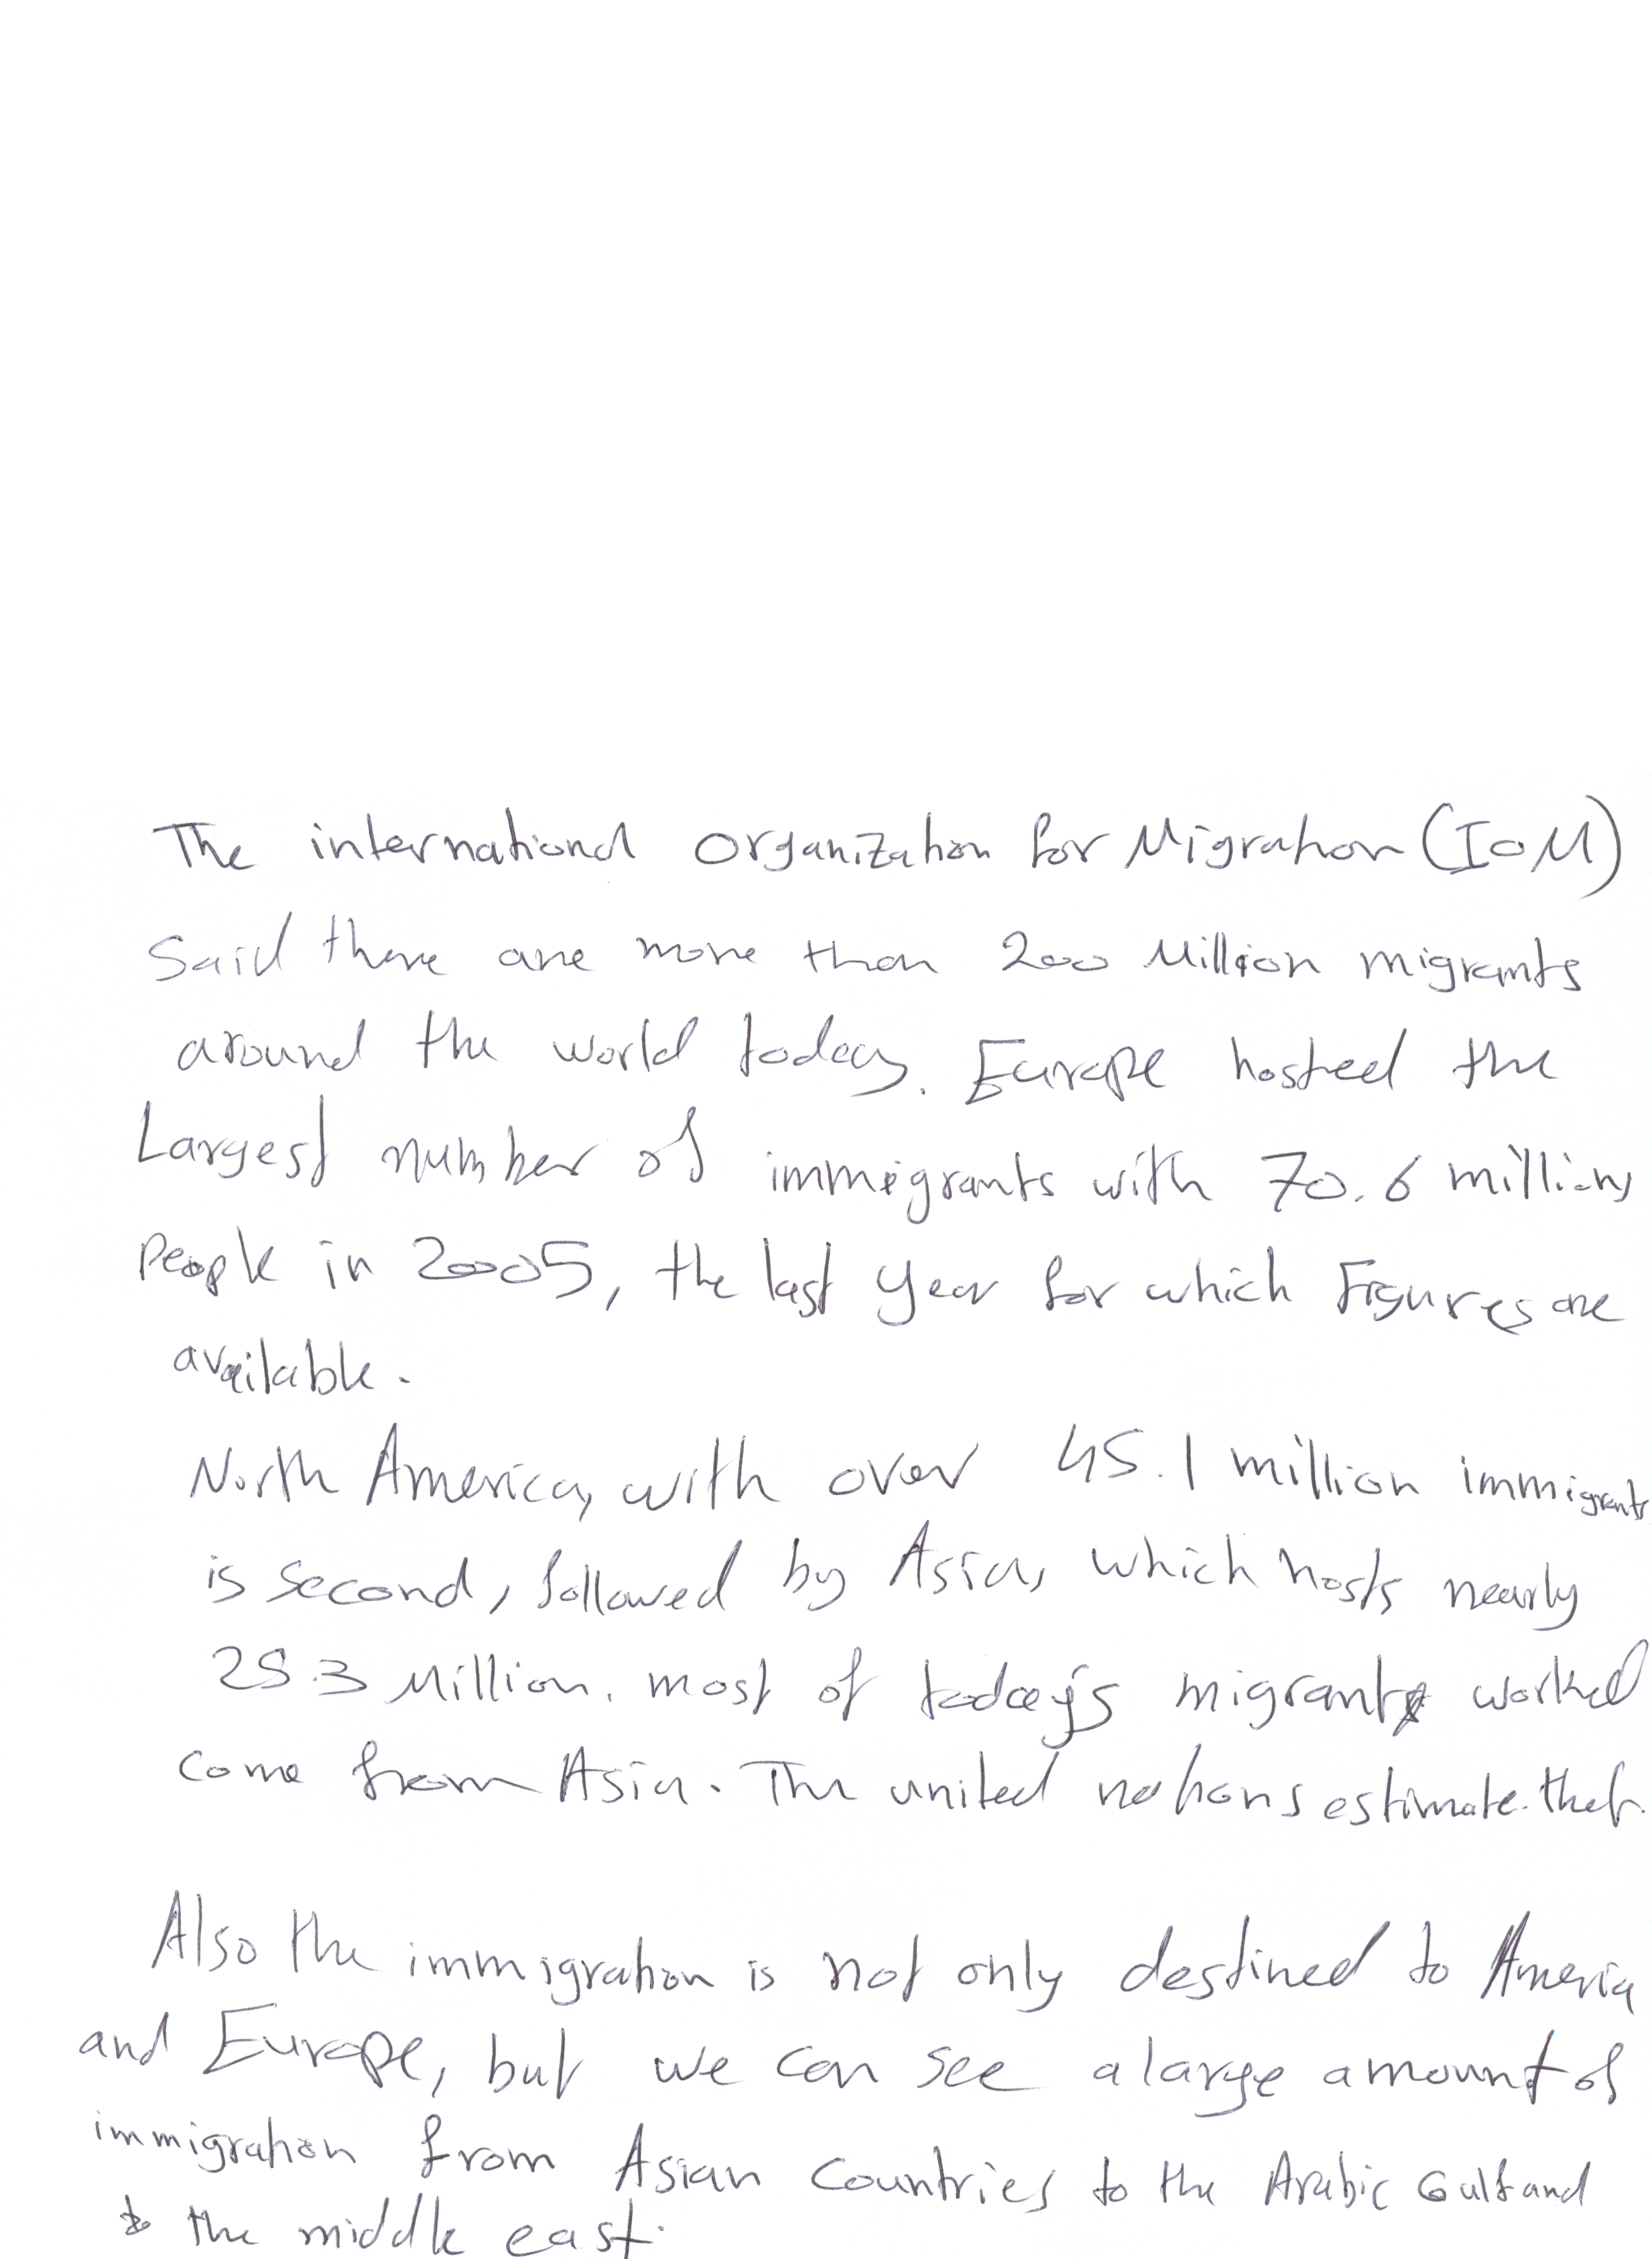 The international Organization for Migration (IOM)
Said there are more than 200 Million migrants
around the world today. Europe hosted the
Largest number of immigrants with 70.6 millions
People in 2005, the last year for which Figures are
available.
North America, with over 45.1 million immigrants
is second, followed by Asia, which hosts nearly
25.3 Million. most of today's migrant worked
come from Asia. The united nations estimate that.
Also the immigration is not only destined to America
and Europe, but we can see a large amount of
immigration from Asian Countries to the Arabic Gulf and
to the middle east.